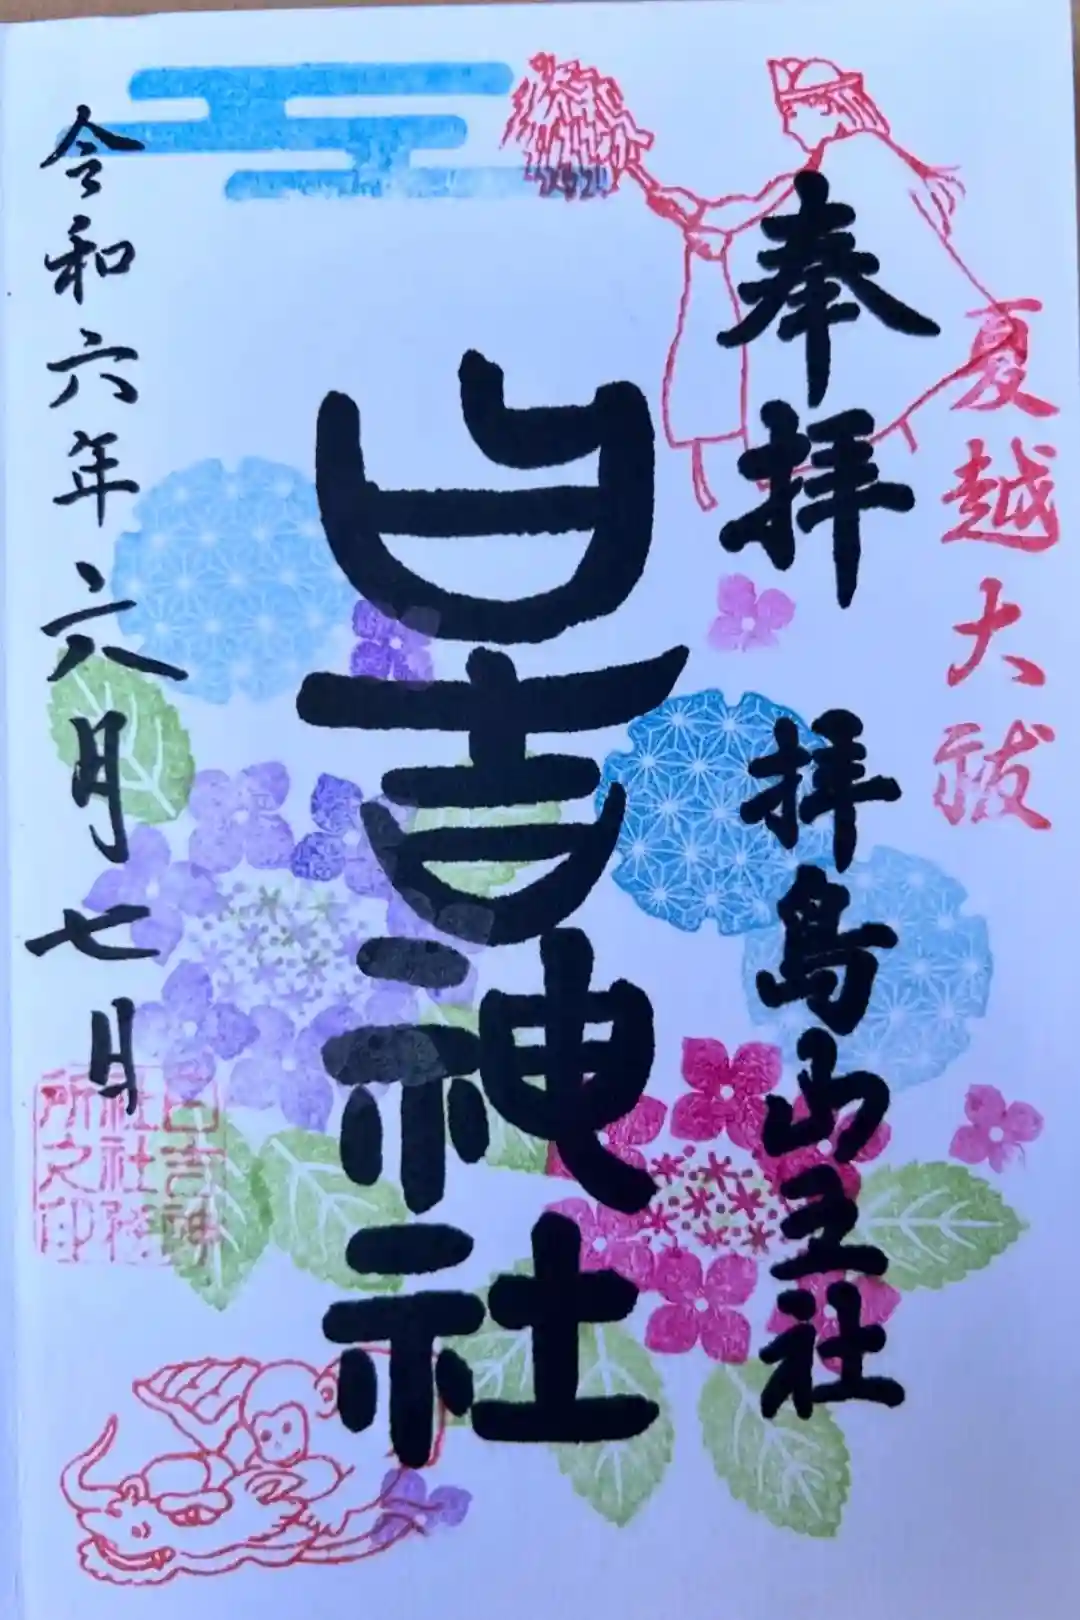 夏越大祓
奉拝 拝島山王社
日吉神社
令和六年六月七日
2024
日吉神
社社務
所之印